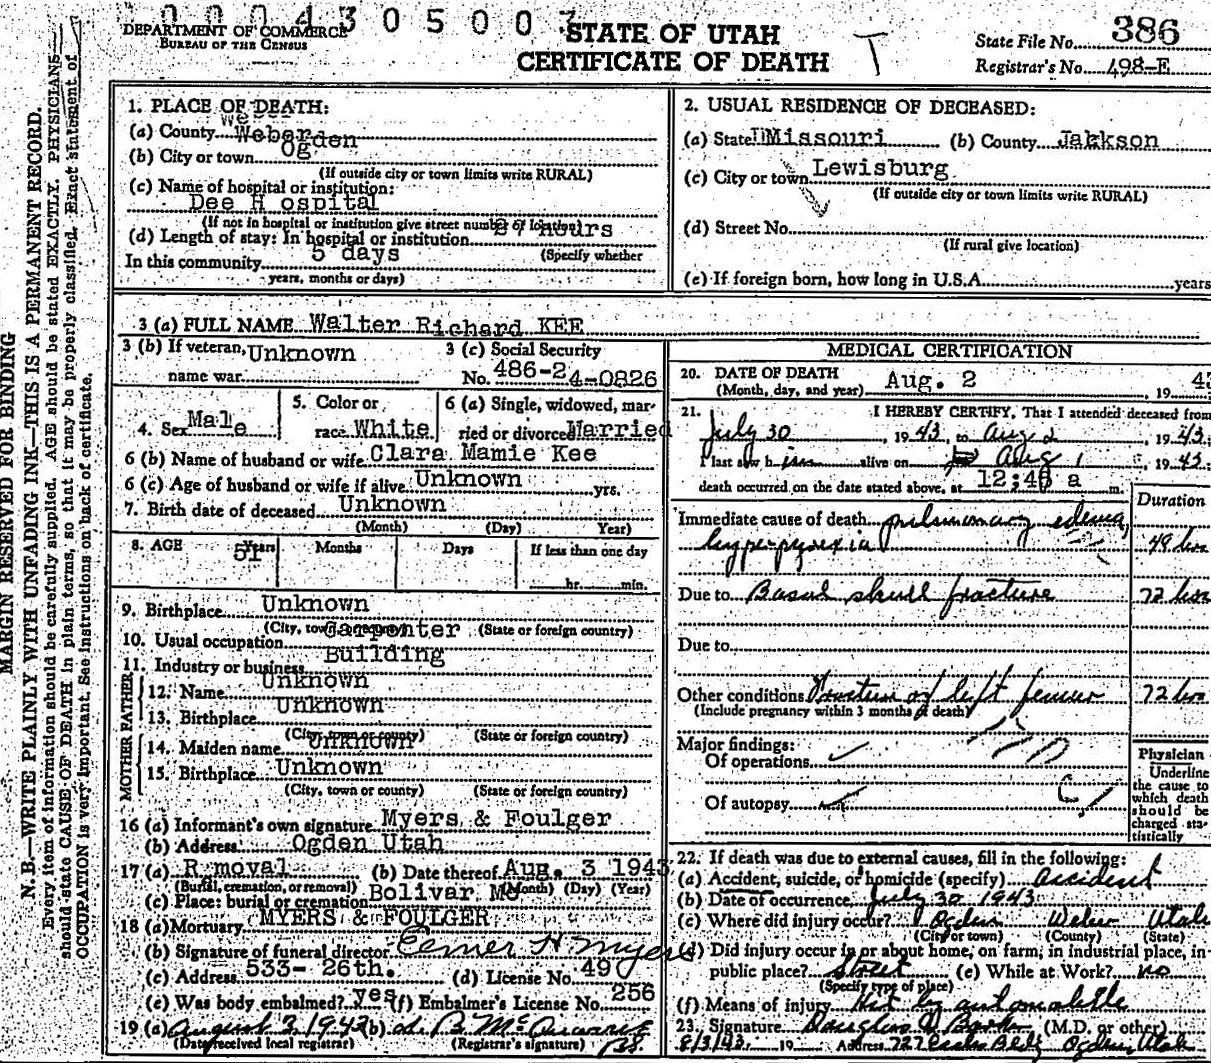 0004305007
DEPARTMENT OF COMMERCE
BUREAU OF THE CENSUS
STATE OF UTAH
CERTIFICATE OF DEATH
T
State File No. 386
Registrar's No. 498-E
MARGIN RESERVED FOR BINDING
N. B.—WRITE PLAINLY WITH UNFADING INK—THIS IS A PERMANENT RECORD.
Every item of information should be carefully supplied. AGE should be stated EXACTLY. PHYSICIANS
should state CAUSE OF DEATH in plain terms, so that it may be properly classified. Exact statement of
OCCUPATION is very important. See instructions on back of certificate.
1. PLACE OF DEATH:
(a) County Weber
(b) City or town Ogden
(If outside city or town limits write RURAL)
(c) Name of hospital or institution:
Dee H ospital
(If not in hospital or institution give street number or location)
(d) Length of stay: In hospital or institution hours
(Specify whether
In this community 5 days
years, months or days)
2. USUAL RESIDENCE OF DECEASED:
(a) State Missouri (b) County Jakkson
(c) City or town Lewisburg
(If outside city or town limits write RURAL)
(d) Street No.
(If rural give location)
(e) If foreign born, how long in U.S.A. years
3 (a) FULL NAME Walter Richard KEE
3 (b) If veteran, Unknown
name war
3 (c) Social Security
No. 486-24-0826
4. Sex Male
5. Color or
race White
6 (a) Single, widowed, mar-
ried or divorced Married
6 (b) Name of husband or wife Clara Mamie Kee
6 (c) Age of husband or wife if alive Unknown yrs.
7. Birth date of deceased Unknown
(Month) (Day) Year)
8. AGE 51 Years Months Days If less than one day
hr. min.
9. Birthplace Unknown
(City, town, or county) (State or foreign country)
10. Usual occupation Carpenter
11. Industry or business Building
FATHER
12. Name Unknown
13. Birthplace Unknown
(City, town or county) (State or foreign country)
MOTHER
14. Maiden name Unknown
15. Birthplace Unknown
(City, town or county) (State or foreign country)
16 (a) Informant's own signature Myers & Foulger
(b) Address Ogden Utah
17 (a) R moval (b) Date thereof Aug. 3 1943
(Burial, cremation, or removal) (Month) (Day) (Year)
(c) Place: burial or cremation Bolivar Mo
18 (a) Mortuary MYERS & FOULGER
(b) Signature of funeral director Elmer H Myers
(c) Address 533- 26th. (d) License No. 490
(e) Was body embalmed? yes (f) Embalmer's License No. 256
19 (a) August 3 1943 (b)
(Date received local registrar) (Registrar's signature)
MEDICAL CERTIFICATION
20. DATE OF DEATH
(Month, day, and year) Aug. 2 19 43
21. I HEREBY CERTIFY, That I attended deceased from
July 30, 1943, to Aug 2, 1943;
I last saw him alive on Aug 1, 1943;
death occurred on the date stated above, at 12:40 a m.
Duration
Immediate cause of death pulmonary edema,
hyperpyrexia 48 hrs
Due to Basal skull fracture 72 hrs
Due to
Other conditions Fracture of left femur 72 hrs
(Include pregnancy within 3 months of death)
Major findings:
Of operations
Of autopsy
Physician
Underline
the cause to
which death
should be
charged sta-
tistically
22. If death was due to external causes, fill in the following:
(a) Accident, suicide, or homicide (specify) Accident
(b) Date of occurrence July 30 1943
(c) Where did injury occur? Ogden Weber Utah
(City or town) (County) (State)
(d) Did injury occur in or about home, on farm, in industrial place, in
public place? Street (e) While at Work? no
(Specify type of place)
(f) Means of injury Hit by automobile
23. Signature (M.D. or other)
8/3/43 19 Address 727 Eccles Bldg Ogden, Utah